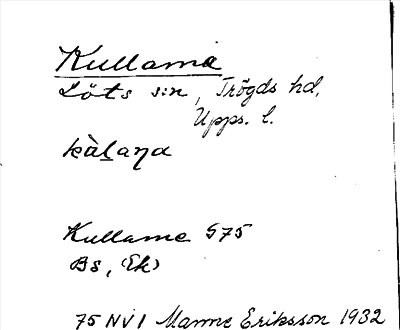 Kullarna
Löts sn, Trögds hd,
Upps. l.
kàlaŋa
Kullarne S75
Bs, (Ek)
75 NV1 Manne Eriksson 1932